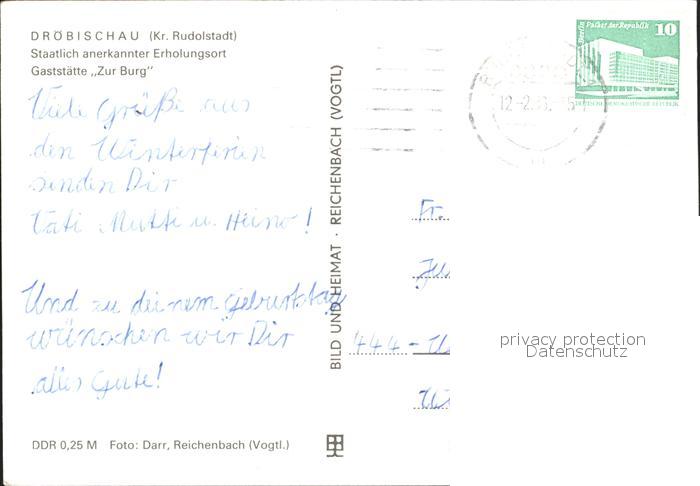 DRÖBISCHAU (Kr. Rudolstadt)
Staatlich anerkannter Erholungsort
Gaststätte „Zur Burg"
Viele Grüße aus
den Winterferien
senden Dir
Tati Mutti u. Heino!
Und zu deinem Geburtstag
wünschen wir Dir
alles Gute!
DDR 0,25 M Foto: Darr, Reichenbach (Vogtl.)
BILD UND HEIMAT · REICHENBACH (VOGTL)
Berlin Palast der Republik 10
DEUTSCHE DEMOKRATISCHE REPUBLIK
12.-2.
Fr.
444-
privacy protection
Datenschutz